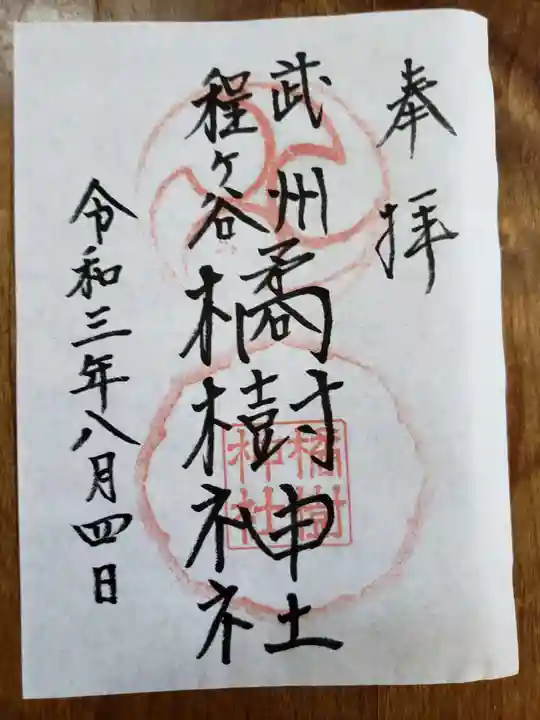 奉拝
武州
程ヶ谷
橘樹神社
令和三年八月四日
橘樹
神社